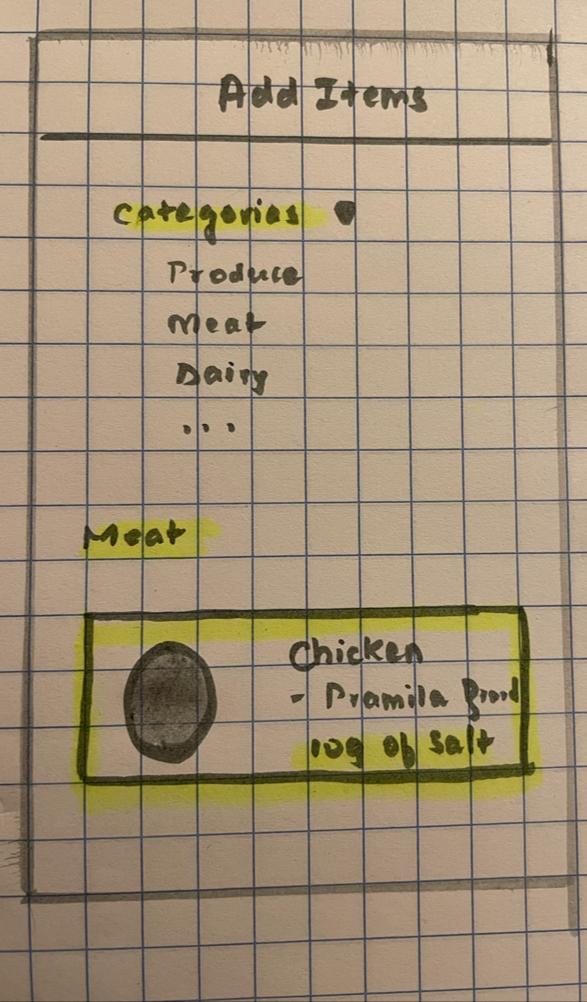 Add Items
Categories
Produce
Meat
Dairy
...
Meat
Chicken
- Pramila Brand
10g of Salt